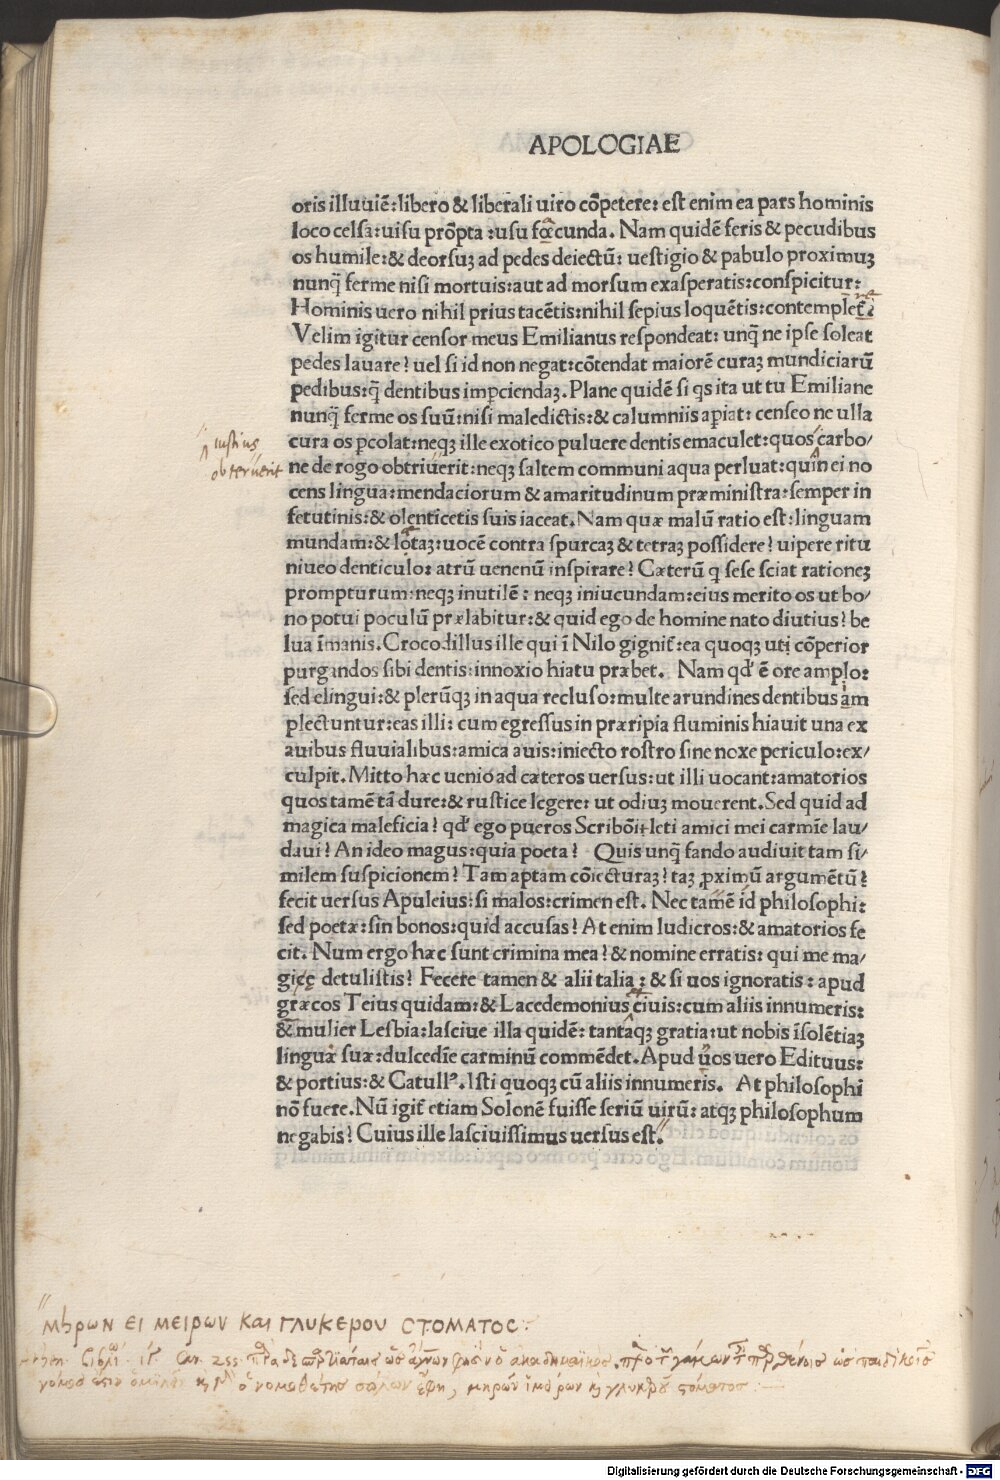 APOLOGIAE
oris illuuiē: libero & liberali uiro cōpetere: est enim ea pars hominis
loco celsa: uisu prōpta: usu fœcunda. Nam quidē feris & pecudibus
os humile: & deorsuꝫ ad pedes deiectū: uestigio & pabulo proximuꝫ
nunq̄ ferme nisi mortuis: aut ad morsum exasperatis: conspicitur:
Hominis uero nihil prius tacētis: nihil sepius loquētis: contemplet̄:
Velim igitur censor meus Emilianus respondeat: unq̄ ne ipse soleat
pedes lauare? uel si id non negat: cōtendat maiorē curaꝫ mundiciarū
pedibus: q̄ dentibus imꝑciendaꝫ. Plane quidē si qs ita ut tu Emiliane
nunq̄ ferme os suū: nisi maledictis: & calumniis aꝑiat: censeo ne ulla
cura os ꝑcolat: neqꝫ ille exotico puluere dentis emaculet: quos carbo/
iustius
obteruerit
ne de rogo obtriuerit: neqꝫ saltem communi aqua perluat: quin ei no
cens lingua: mendaciorum & amaritudinum præministra: semper in
fetutinis: & olenticetis suis iaceat. Nam quæ malū ratio est: linguam
mundam: & lotaꝫ: uocē contra spurcaꝫ & tetraꝫ possidere? uipere ritu
niueo denticulo: atrū uenenū inspirare? Cæterū q sese sciat rationeꝫ
prompturum: neqꝫ inutilē: neqꝫ iniucundam: eius merito os ut bo/
no potui poculū prælabitur: & quid ego de homine nato diutius? be
lua īmanis. Crocodillus ille qui ī Nilo gignit̄: ea quoqꝫ uti cōperior
purgandos sibi dentis: innoxio hiatu præbet. Nam qd' ē ore amplo:
sed elingui: & plerūqꝫ in aqua recluso: multe arundines dentibus am
plectuntur: eas illi: cum egressus in præripia fluminis hiauit una ex
auibus fluuialibus: amica auis: iniecto rostro sine noxe periculo: ex/
culpit. Mitto hæc uenio ad cæteros uersus: ut illi uocant: amatorios
quos tamē tā dure: & rustice legere: ut odiuꝫ mouerent. Sed quid ad
magica maleficia? qd' ego pueros Scribōii leti amici mei carmīe lau/
daui? An ideo magus: quia poeta? Quis unq̄ fando audiuit tam si/
milem suspicionem? Tam aptam cōiecturaꝫ? taꝫ ꝓximū argumētū?
fecit uersus Apuleius: si malos: crimen est. Nec tamē id philosophi:
sed poetæ: sin bonos: quid accusas? At enim ludicros: & amatorios fe
cit. Num ergo hæc sunt crimina mea? & nomine erratis: qui me ma/
gięę detulistis? Fecere tamen & alii talia: & si uos ignoratis: apud
græcos Teius quidam: & Lacedemonius ciuis: cum aliis innumeris:
& mulier Lesbia: lasciue illa quidē: tantaqꝫ gratia: ut nobis īsolētiaꝫ
linguæ suæ: dulcedīe carminū commēdet. Apud uos uero Edituus:
& portius: & Catullꝰ. Isti quoqꝫ cū aliis innumeris. At philosophi
nō fuere. Nū igit̄ etiam Solonē fuisse seriū uirū: atqꝫ philosophum
negabis? Cuius ille lasciuissimus uersus est.
ΜΗΡΩΝ ΕΙ ΜΕΙΡΩΝ ΚΑΙ ΓΛΥΚΕΡΟΥ ΣΤΟΜΑΤΟΣ:
ὁ νομοθέτης σόλων ἔφη, μηρῶν ἱμείρων